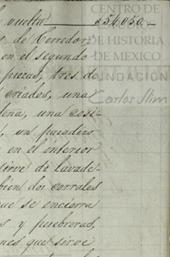 l vuelta $54,050.
o de Corredor
en el segundo
piezas, tres de
criados, una
dena, una coci-
, un pasadizo
en el interior
sirve de lavade-
bien dos corrales
que se encierra
s y pesebreras,
nes que sirve
CENTRO DE
ESTUDIOS
DE HISTORIA
DE MEXICO
FUNDACIÓN
Carlos Slim